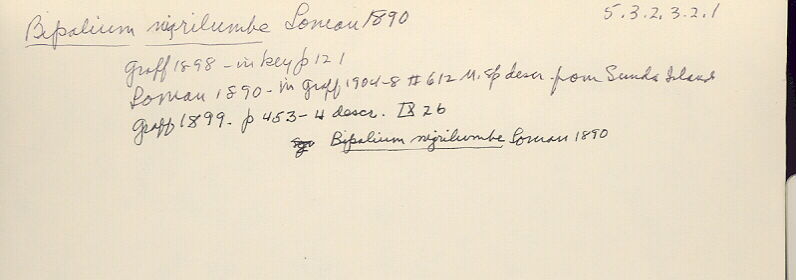 Bipalium nigrilumbe Loman 1890 5.3.2.3.2.1
Graff 1898 - in key p 121
Loman 1890 - in Graff 1904-8 # 612 n. sp descr. from Sunda Islands
Graff 1899. p 453-4 descr. IX 26
Bipalium nigrilumbe Loman 1890